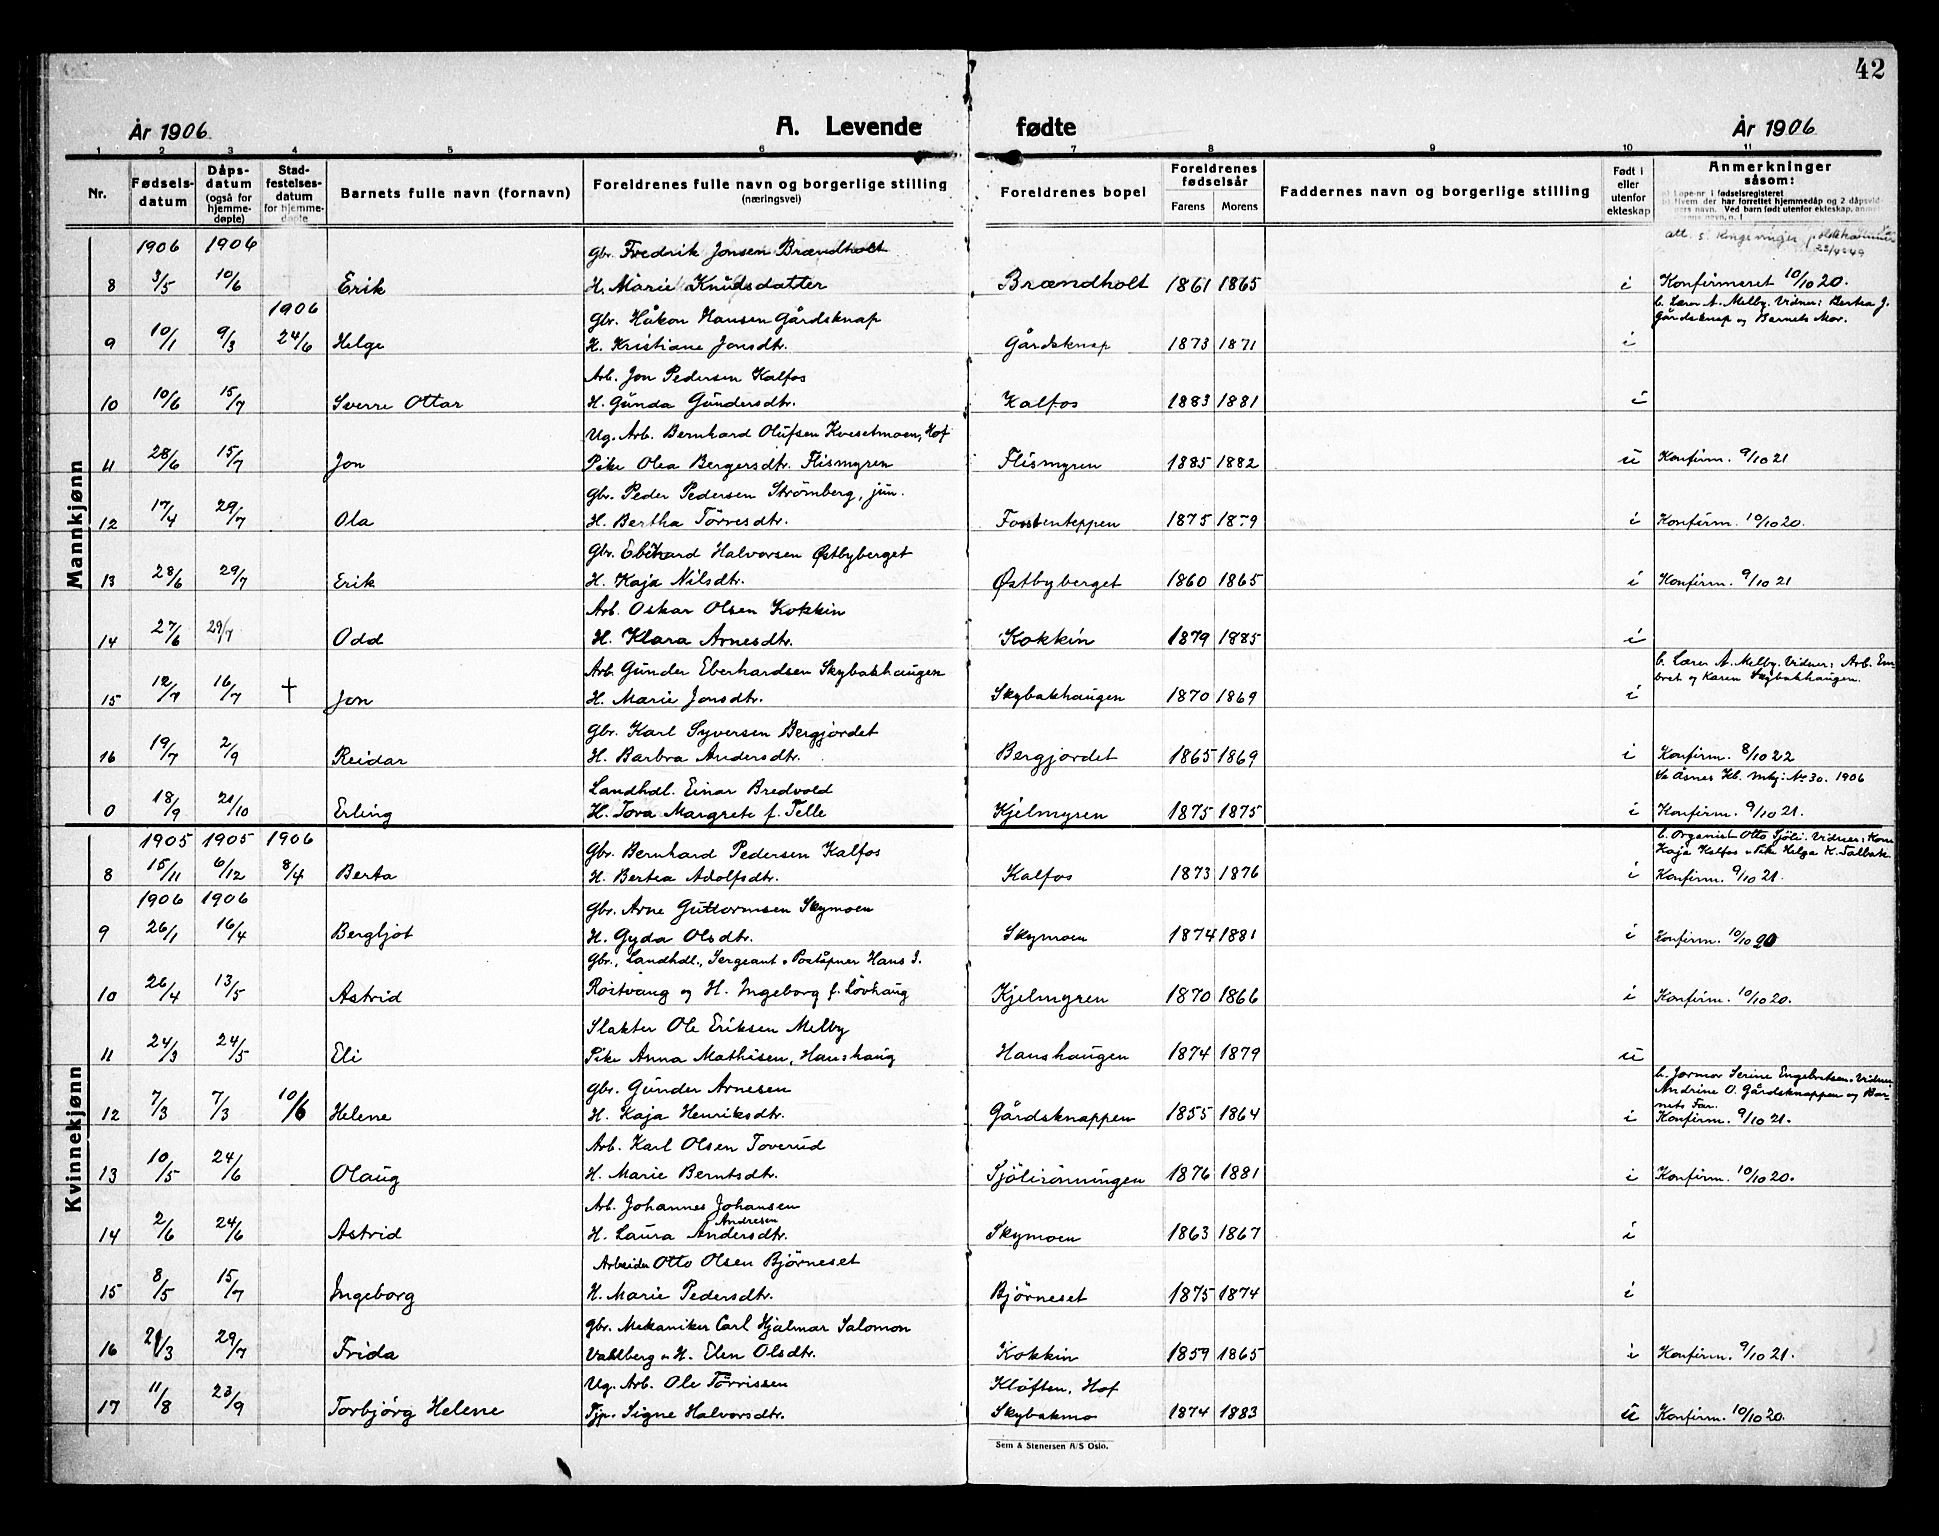 42
År 1906. A. Levende fødte År 1906
1 2 3 4 5 6 7 8 9 10 11
Nr. Fødselsdatum Dåpsdatum (også for hjemmedøpte) Stadfestelsesdatum for hjemmedøpte Barnets fulle navn (fornavn) Foreldrenes fulle navn og borgerlige stilling (næringsvei) Foreldrenes bopel Foreldrenes fødselsår Farens Morens Faddernes navn og borgerlige stilling Født i eller utenfor ekteskap Anmerkninger såsom:
a) Løpe-nr. i fødselsregisteret
b) Hvem der har forrettet hjemmedåp og 2 dåpsvidners navn. Ved barn født utenfor ekteskap,
Mannkjønn
1906 1906 Gbr. Fredrik Jonsen Brændholt att. s. Kongsvinger 23/4-49
8 3/5 10/6 Erik H. Marie Knudsdatter Brændholt 1861 1865 i Konfirmeret 10/10 20.
1906 Gbr. Håkon Hansen Gårdsknap b. Lærer A. Melby. Vidner: Bertea J.
Gårdsknap og Barnets Mor.
9 10/1 9/3 24/6 Helge H. Kristiane Jonsdtr. Gårdsknap 1873 1871 i
Arb. Jon Pedersen Kalfos
10 10/6 15/7 Sverre Ottar H. Gunda Gundersdtr. Kalfos 1883 1881 i
Ug. Arb. Bernhard Olufsen Kvesetmoen, Hof
11 28/6 15/7 Jon Pike Olea Bergersdtr. Flismyren Flismyren 1885 1882 u Konfirm. 9/10 21
Gbr. Peder Pedersen Strømberg, jun.
12 17/4 29/7 Ola H. Bertha Tørresdtr. Fossenteppen 1875 1879 i Konfirm. 10/10 20.
Gbr. Eberhard Halvorsen Østbyberget
13 28/6 29/7 Erik H. Kaja Nilsdtr. Østbyberget 1860 1865 i Konfirm. 9/10 21
Arb. Oskar Olsen Kokkin
14 27/6 29/7 Odd H. Klara Arnesdtr. Kokkin 1879 1885 i
Arb. Gunder Eberhardsen Skybakhaugen b. Lærer A. Melby. Vidner: Arb. Em-
bret og Karen Skybakhaugen.
15 12/7 16/7 † Jon H. Marie Jonsdtr. Skybakhaugen 1870 1869 i
Gbr. Karl Syversen Bergjordet
16 19/7 2/9 Reidar H. Barbra Andersdtr. Bergjordet 1865 1869 i Konfirm. 8/10 22
Landhdl. Einar Bredvold Se Åsnes Kb. mkj: Nr 30. 1906
0 18/9 21/10 Erling H. Tova Margrete f. Telle Kjelmyren 1875 1875 i Konfirm. 9/10 21.
Kvinnekjønn
1905 1905 1906 Gbr. Bernhard Pedersen Kalfos b. Organist Otto Sjöli. Vidner: Kone
Kaja Kalfos o Pike Helga K. Galbak.
8 15/11 6/12 8/4 Berta H. Bertea Adolfsdtr. Kalfos 1873 1876 i Konfirm. 9/10 21.
1906 1906 Gbr. Arne Guttormsen Skymoen
9 26/1 16/4 Bergljot H. Gyda Olsdtr. Skymoen 1874 1881 i Konfirm. 10/10 20
Gbr., Landhdl., Sergeant o Poståpner Hans J.
10 26/4 13/5 Astrid Rostvang og H. Ingeborg f. Lövhaug Kjelmyren 1870 1866 i Konfirm. 10/10 20.
Slakter Ole Eriksen Melby
11 24/3 24/5 Eli Pike Anna Mathisen, Hanshaug Hanshaugen 1874 1879 u
Gbr. Gunder Arnesen b. Jormor Serine Engebretsen. Vidner
Andrine O. Gårdsknappen og Bar-
nets Far.
12 7/3 7/3 10/6 Helene H. Kaja Henriksdtr. Gårdsknappen 1855 1864 i Konfirm. 9/10 21.
Arb. Karl Olsen Toverud
13 10/5 24/6 Olaug H. Marie Berntsdtr. Sjölirönningen 1876 1881 i Konfirm. 10/10 20.
Arb. Johannes Johansen
Andresen
14 2/6 24/6 Astrid H. Laura Andersdtr. Skymoen 1863 1867 i
Arbeider Otto Olsen Björneset
15 8/5 15/7 Ingeborg H. Marie Pedersdtr. Björneset 1875 1874 i
Gbr. Mekaniker Carl Hjalmar Salomon
16 21/3 29/7 Frida Vahlberg o H. Elen Olsdtr. Kokkin 1859 1865 i Konfirm. 9/10 21.
Ug. Arb. Ole Tørrissen Kløften, Hof
17 11/8 23/9 Torbjørg Helene Tjp. Signe Halvorsdtr. Skybakmo 1874 1883 u Konfirm. 10/10 20.
Sem & Stenersen A/S Oslo.